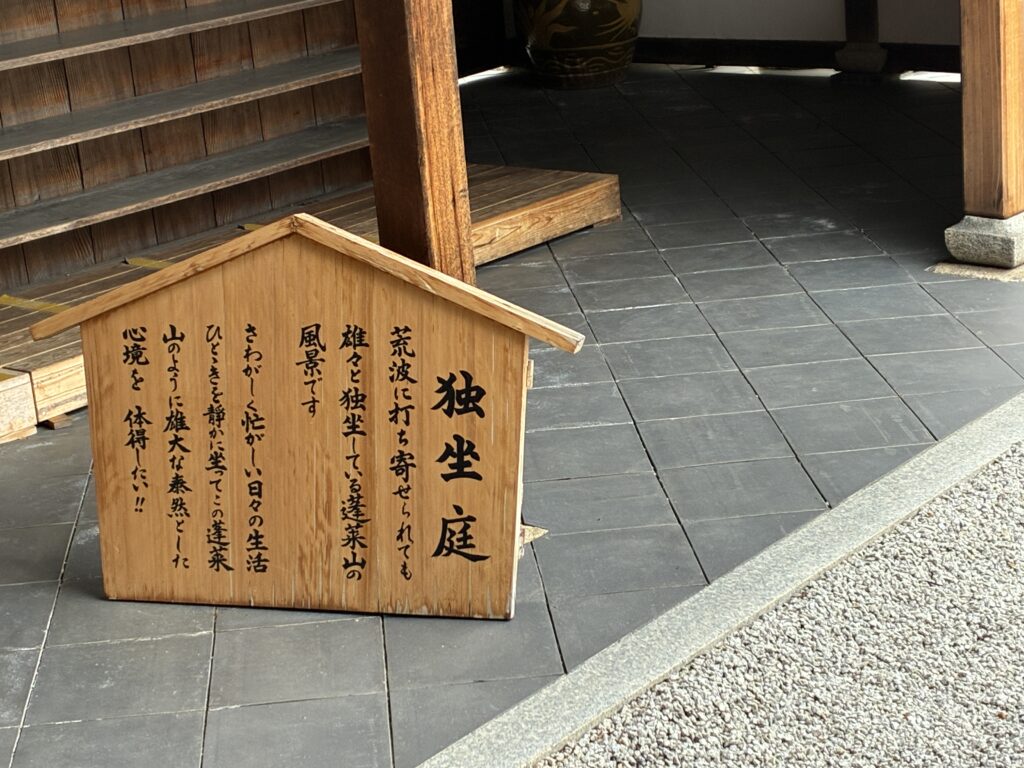 独坐庭
荒波に打ち寄せられても
雄々と独坐している蓬莱山の
風景です
さわがしく忙がしい日々の生活
ひとときを静かに坐ってこの蓬莱
山のように雄大な泰然とした
心境を 体得したい!!